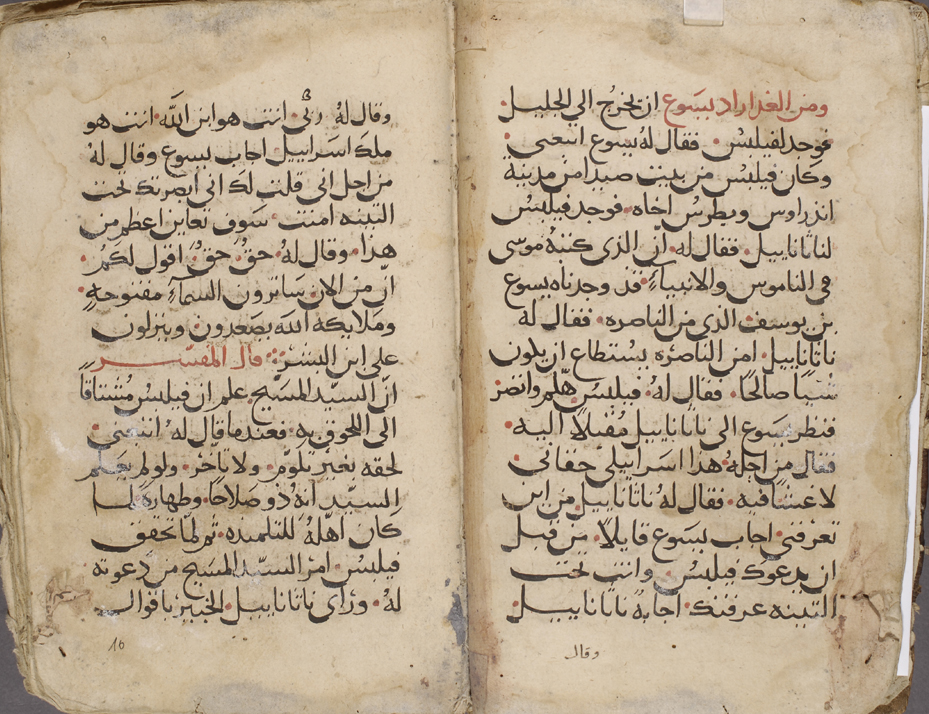 ومن الغد اراد يسوع ان يخرج الي الجليل
فوجد لفيلبس فقال له يسوع اتبعني
وكان فيلبس من بيت صيدا من مدينة
اندراوس وبطرس اخاه فوجد فيلبس
لناثاناييل فقال له ان الذي كتبه موسى
في الناموس والانبيآء قد وجدناه يسوع
بن يوسف الذي من الناصره فقال له
ناثاناييل امن الناصره يستطاع ان يكون
شييا صالحا فقال له فيلبس هلم وانضر
فنظر يسوع الى ناثاناييل مقبلا اليه
فقال من اجله هذا اسراييلي حقاني
لا غش فيه فقال له ناثاناييل من اين
تعرفني اجاب يسوع قايلا من قبل
ان يدعوك فيلبس وانت تحت
التينه عرفتك اجابه ناثاناييل
وقال
وقال له ربي انت هو ابن الله انت هو
ملك اسراييل اجاب يسوع وقال له
من اجل اني قلت لك اني ابصرتك تحت
التينه امنت سوف تعاين اعظم من
هذا وقال له حق حق اقول لكم
ان من الان سترون السمآء مفتوحه
وملايكه الله يصعدون وينزلون
على ابن البشر قال المفسر
ان السيد المسيح علم ان فيلبس مشتاقا
الى اللحوق به فعندما قال له اتبعني
لحقه بغير تلوم ولا تاخر ولو لم يعلم
السيد انه ذو صلاحا وطهارة لما
كان اهله للتلمذه ثم لما تحقق
فيلبس امر السيد المسيح من دعوته
له وراي ناثاناييل الخبير باقوال
10